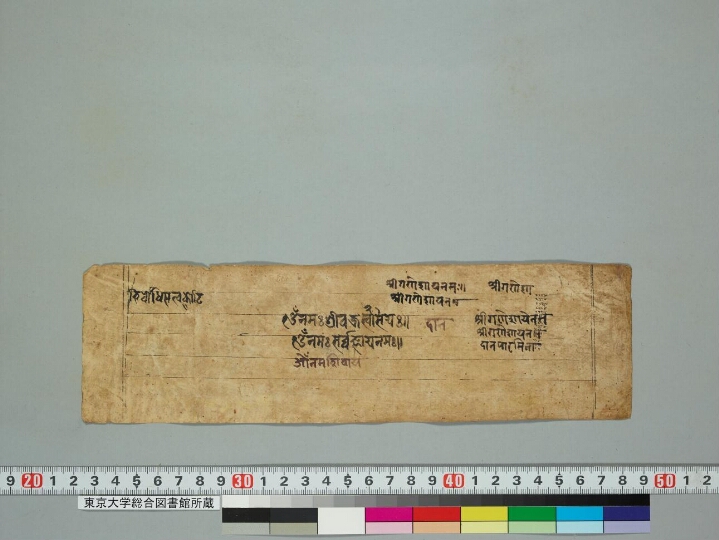 श्रीगणेशायनमः॥ श्रीगणेशा
श्रीगणेशायनम
बोधिसत्वकोटि
ॐनमःश्रीवज्रसत्वाय॥ दान श्रीगणेशायनम
ॐनमःसर्व्वबुद्धायनमः॥ श्रीगणेशायनम
दानपारमिता
ओंनमशिवाय
9 20 1 2 3 4 5 6 7 8 9 30 1 2 3 4 5 6 7 8 9 40 1 2 3 4 5 6 7 8 9 50 1 2
東京大学総合図書館所蔵